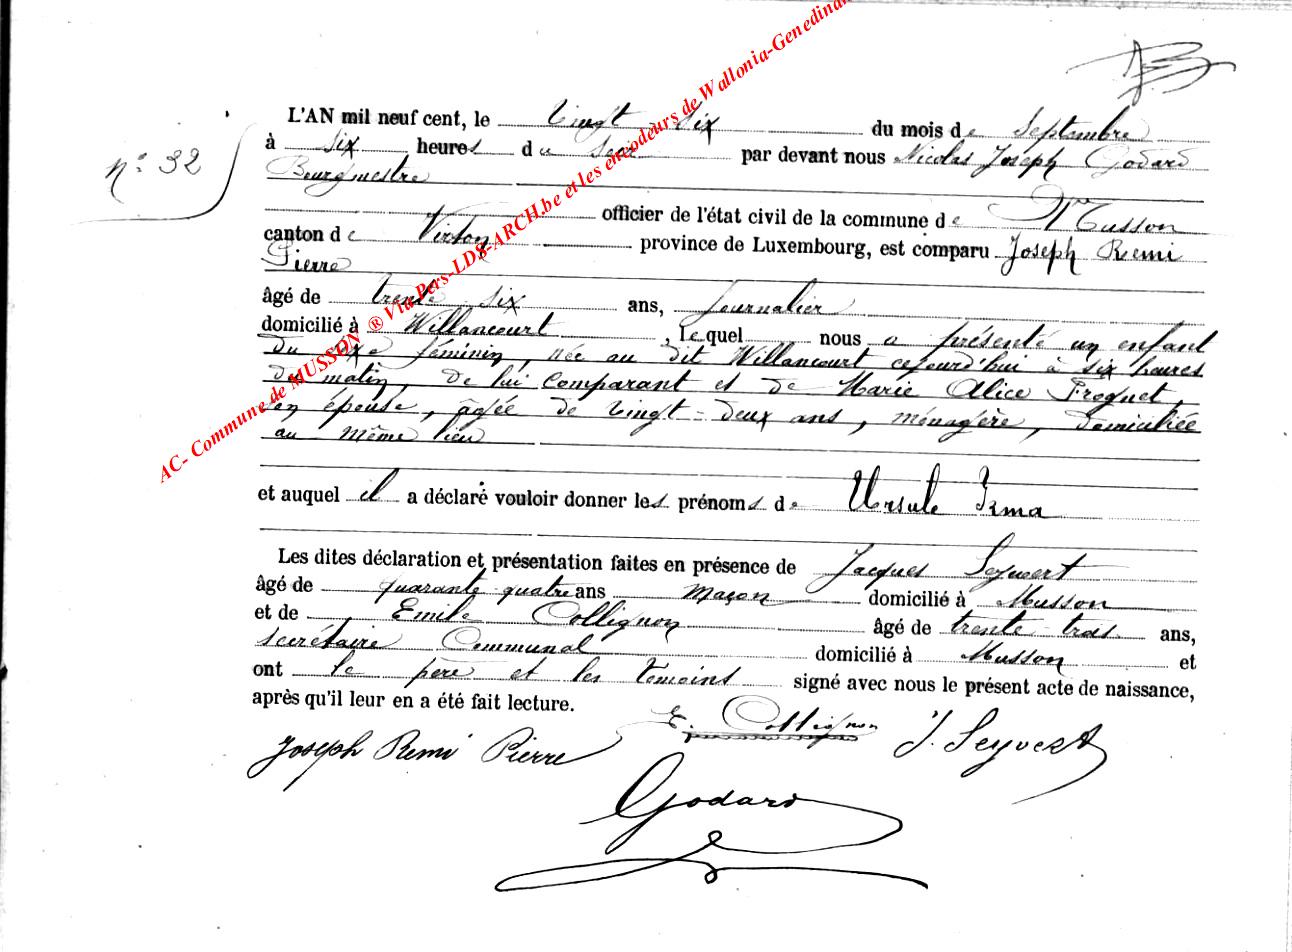 L'AN mil neuf cent, le vingt six du mois de Septembre
n° 32
à six heures du soir par devant nous Nicolas Joseph Godard
Bourgmestre
officier de l'état civil de la commune de Musson
canton de Virton province de Luxembourg, est comparu Joseph Remi
Pierre
âgé de trente six ans, journalier
domicilié à Willancourt, lequel nous a présenté un enfant
du sexe féminin, née au dit Willancourt cejourd'hui à six heures
du matin, de lui comparant et de Marie Alice Froguet,
son épouse, âgée de vingt-deux ans, ménagère, domiciliée
au même lieu
et auquel il a déclaré vouloir donner les prénoms de Ursule Irma
Les dites déclaration et présentation faites en présence de Jacques Seyvert
âgé de quarante quatre ans maçon domicilié à Musson
et de Emile Collignon âgé de trente trois ans,
secrétaire Communal domicilié à Musson et
ont le père et les témoins signé avec nous le présent acte de naissance,
après qu'il leur en a été fait lecture.
E. Collignon
J. Seyvert
Joseph Remi Pierre
Godard
AC- Commune de MUSSON ® Via Pers-LDS-ARCH.be et les encodeurs de Wallonia-Genedinan